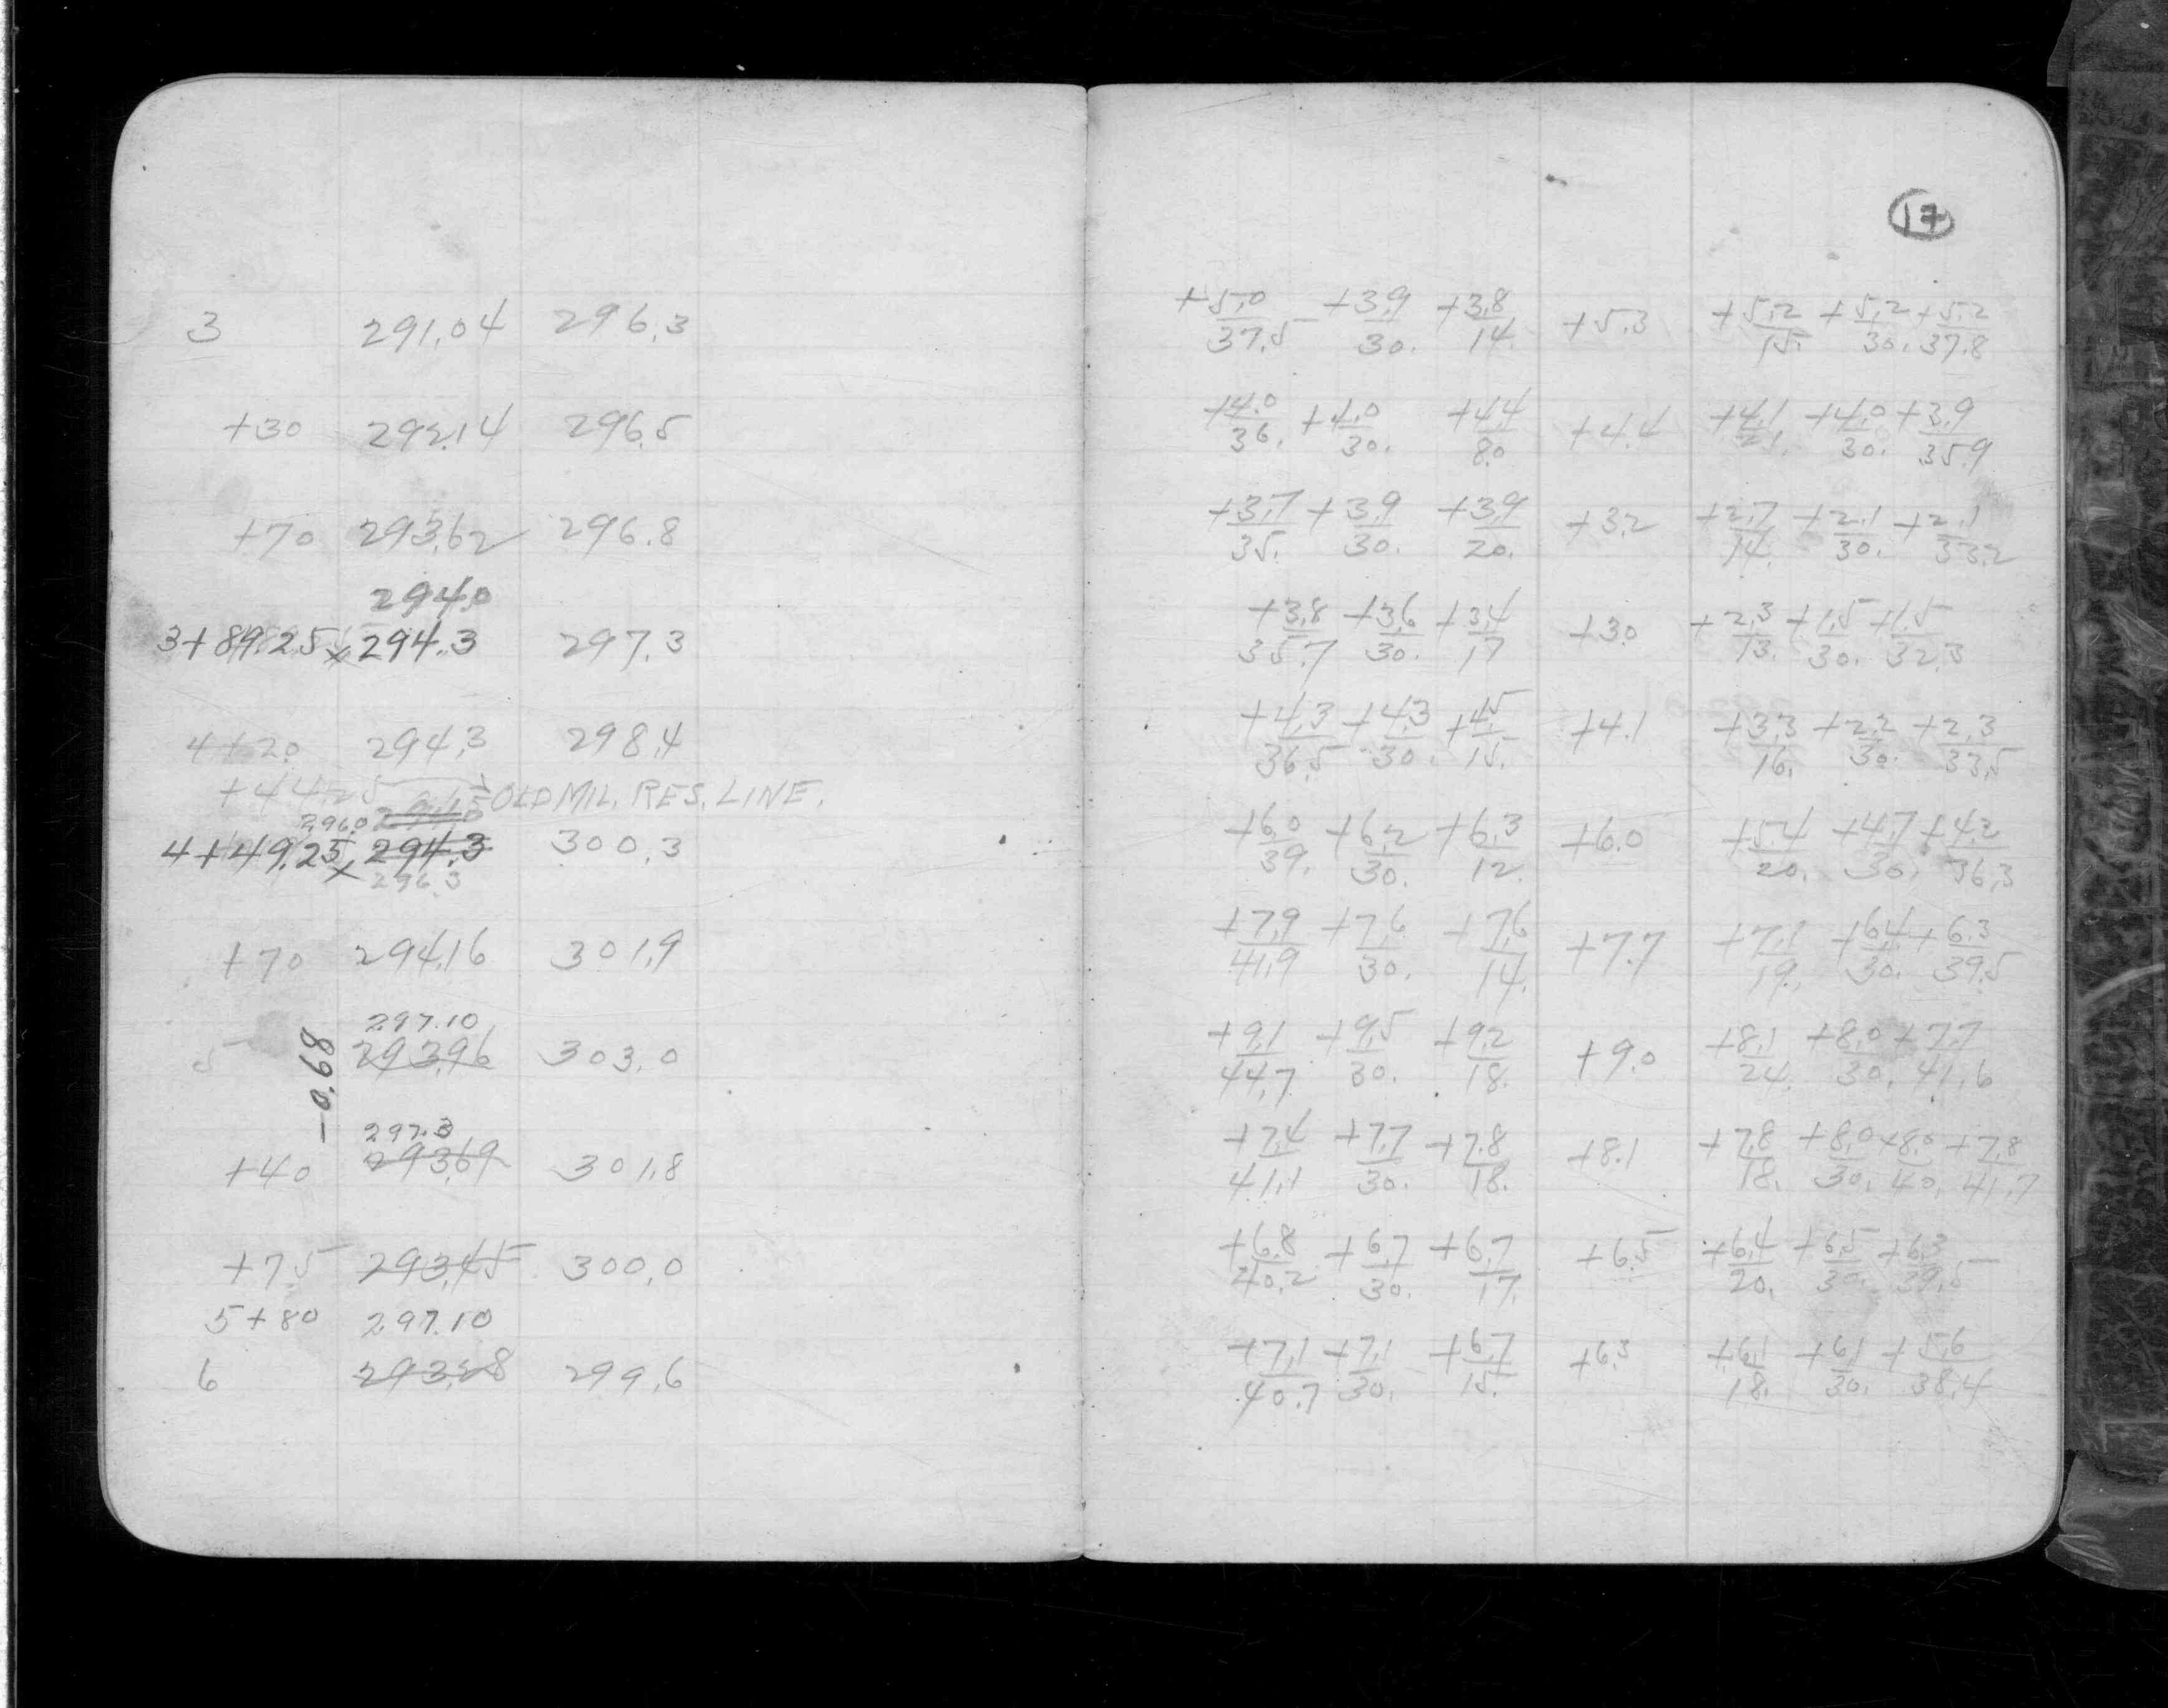 17
3 291.04 296.3 +5.0/37.5 +3.9/30. +3.8/14. +5.3 +5.2/15. +5.2/30. +5.2/37.8
+30 292.14 296.5 +4.0/36. +4.0/30. +4.4/8.0 +4.4 +4.1/21. +4.0/30. +3.9/35.9
+70 293.62 296.8 +3.7/35. +3.9/30. +3.9/20. +3.2 +2.7/14. +2.1/30. +2.1/33.2
294.0
3+89.25 x 294.3 297.3 +3.8/35.7 +3.6/30. +3.4/17 +3.0 +2.3/13. +1.5/30. +1.5/32.3
4+20 294.3 298.4 +4.3/36.5 +4.3/30. +4.5/15. +4.1 +3.3/16. +2.2/30. +2.3/33.5
+44.25 OLD MIL. RES. LINE.
296.0
4+49.25 x 294.3 300.3 +6.0/39. +6.2/30. +6.3/12. +6.0 +5.4/20. +4.7/30. +4.2/36.3
296.3
+70 294.16 301.9 +7.9/41.9 +7.6/30. +7.6/14. +7.7 +7.1/19. +6.4/30. +6.3/39.5
297.10
5 293.96 303.0 +9.1/44.7 +9.5/30. +9.2/18. +9.0 +8.1/24. +8.0/30. +7.7/41.6
-0.68
297.3
+40 293.69 301.8 +7.4/41.1 +7.7/30. +7.8/18. +8.1 +7.8/18. +8.0/30. +8.0/40. +7.8/41.7
+75 293.45 300.0 +6.8/40.2 +6.7/30. +6.7/17. +6.5 +6.4/20. +6.5/30. +6.3/39.5
5+80 297.10
6 293.28 299.6 +7.1/40.7 +7.1/30. +6.7/15. +6.3 +6.1/18. +6.1/30. +5.6/38.4